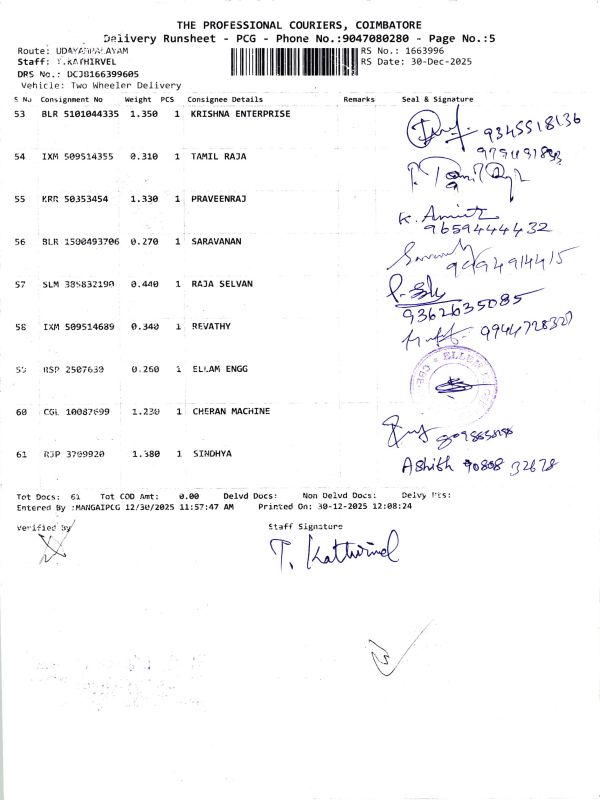 THE PROFESSIONAL COURIERS, COIMBATORE
Delivery Runsheet - PCG - Phone No.:9047080280 - Page No.:5
Route: UDAYAMPALAYAM RS No.: 1663996
Staff: T.KATHIRVEL RS Date: 30-Dec-2025
DRS No.: DCJ8166399605
Vehicle: Two Wheeler Delivery
S No Consignment No Weight PCS Consignee Details Remarks Seal & Signature
53 BLR 5101044335 1.350 1 KRISHNA ENTERPRISE 9345518136
54 IXM 509514355 0.310 1 TAMIL RAJA
55 KRR 50353454 1.330 1 PRAVEENRAJ K. Amirt
9659444432
56 BLR 1500493706 0.270 1 SARAVANAN
57 SLM 385832190 0.440 1 RAJA SELVAN
9362635085
58 IXM 509514689 0.340 1 REVATHY 9944728327
59 RSP 2507630 0.260 1 ELLAM ENGG
60 CGL 10087699 1.230 1 CHERAN MACHINE
61 RJP 3709920 1.380 1 SINDHYA Ashith 90808 32678
Tot Docs: 61 Tot COD Amt: 0.00 Delvd Docs: Non Delvd Docs: Delvy Hrs:
Entered By :MANGAIPCG 12/30/2025 11:57:47 AM Printed On: 30-12-2025 12:08:24
Verified By Staff Signature
T. Kathirvel